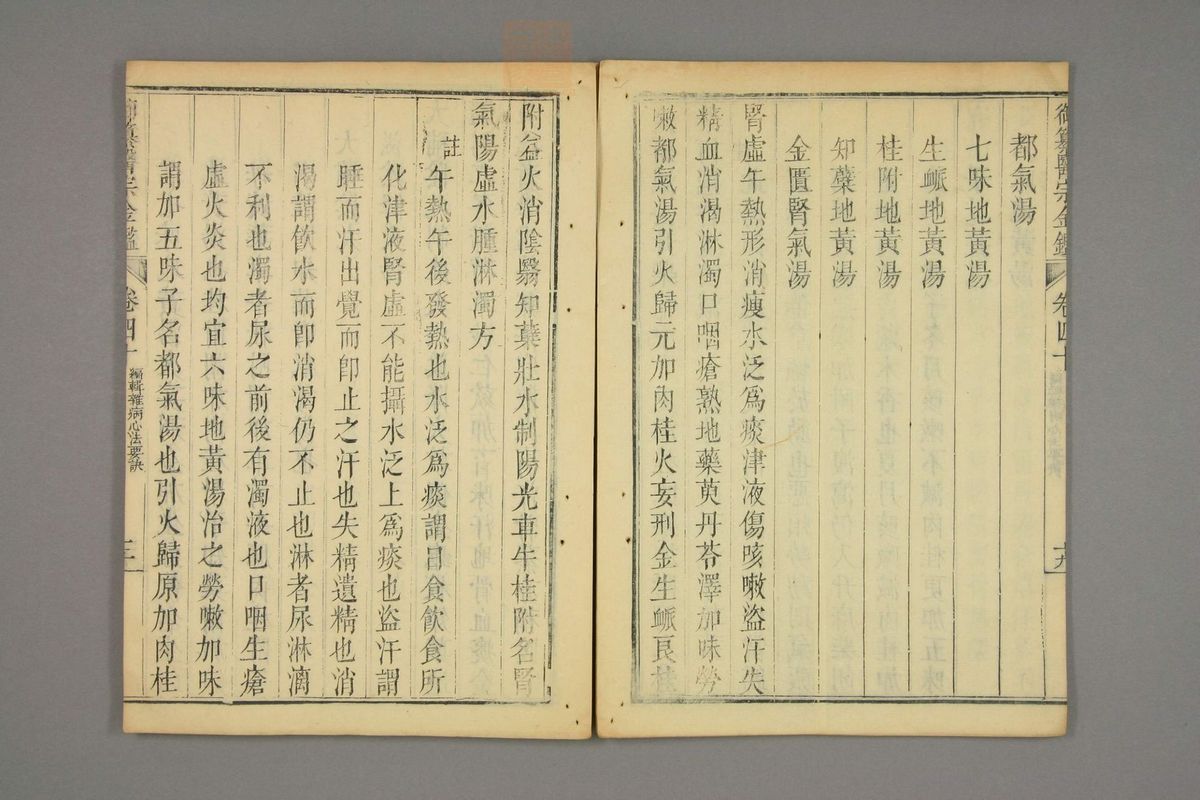 御纂醫宗金鑑 卷四十
都氣湯
七味地黃湯
生䘐地黃湯
桂附地黃湯
知蘗地黃湯
金匱腎氣湯
腎虛午熱形消瘦水泛爲痰津液傷咳嗽盜汗失
精血消渴淋濁口咽瘡熟地藥萸丹苓澤加味勞
嗽都氣湯引火歸元加肉桂火妄刑金生䘐良桂
附益火消陰翳知蘗壯水制陽光車牛桂附名腎
氣陽虛水腫淋濁方
註午熱午後發熱也水泛爲痰謂日食飲食所
化津液腎虛不能攝水泛上爲痰也盜汗謂
睡而汗出覺而卽止之汗也失精遺精也消
渴謂飲水而卽消渴仍不止也淋者尿淋漓
不利也濁者尿之前後有濁液也口咽生瘡
虛火炎也均宜六味地黃湯治之勞嗽加味
謂加五味子名都氣湯也引火歸原加肉桂
御纂醫宗金鑑 卷四十 編輯雜病心法要訣